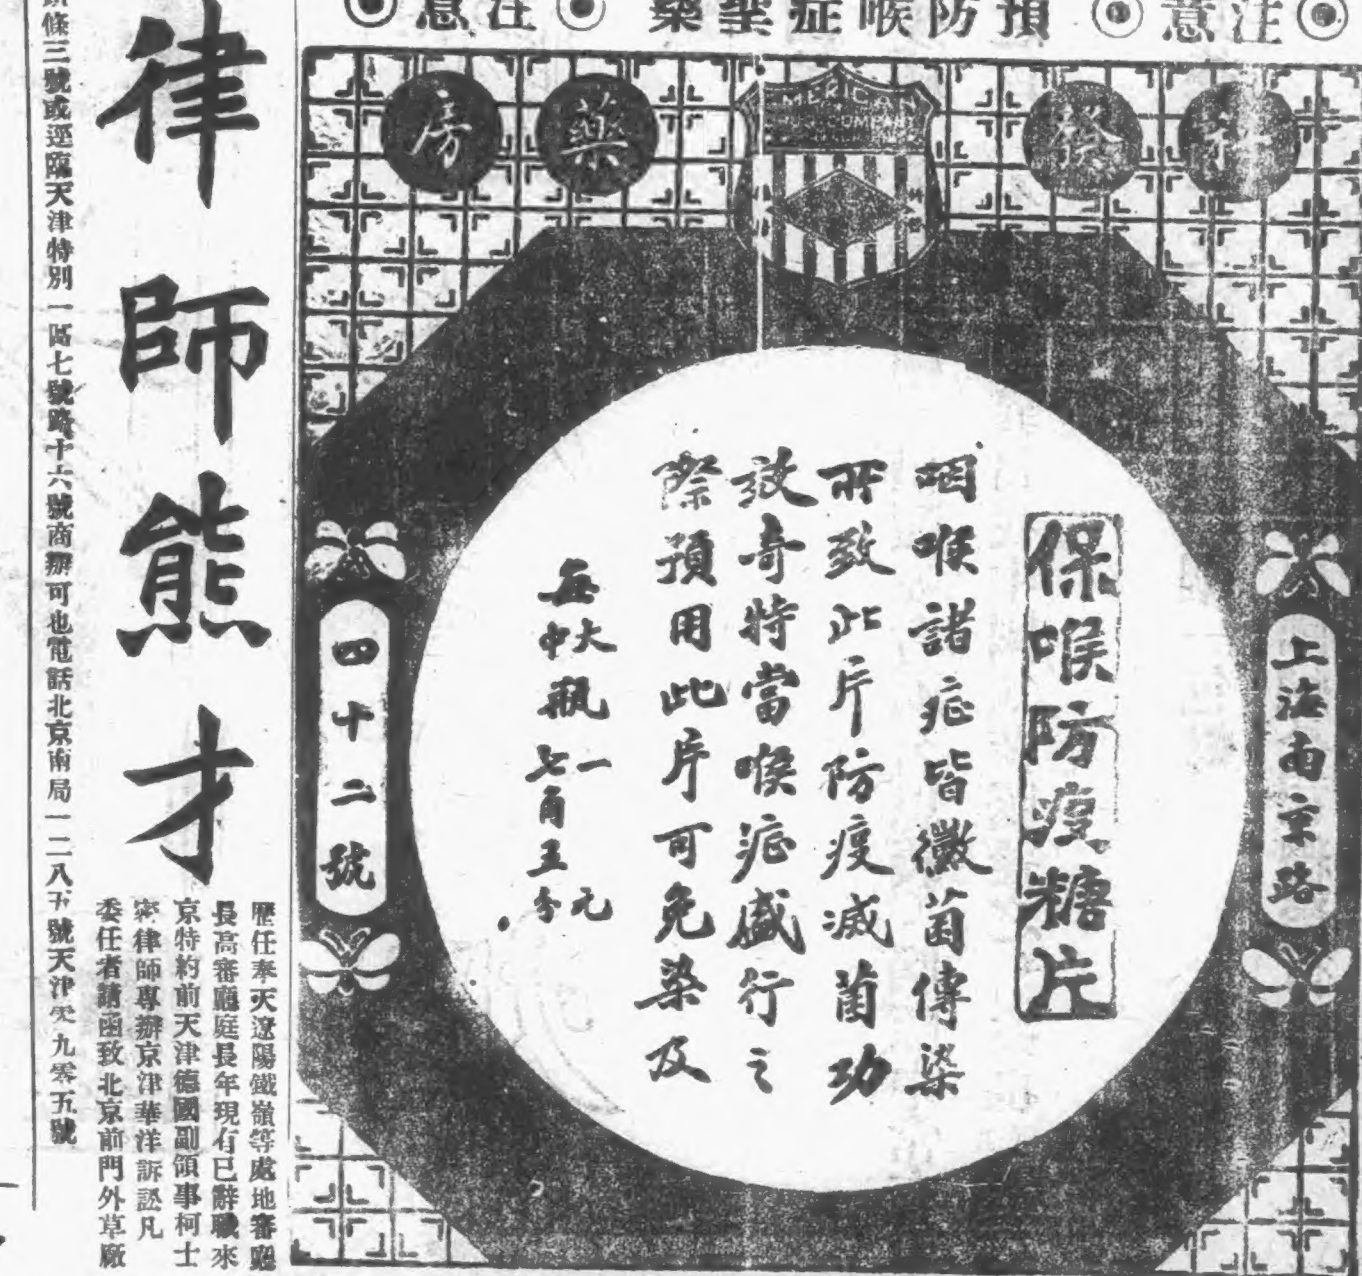 注意 預防喉症聖藥 注意
科發藥房
AMERICAN
DRUG COMPANY
上海南京路
四十二號
保喉防疫糖片
咽喉諸症皆黴菌傳染
所致此片防疫滅菌功
效奇特當喉症盛行之
際預用此片可免染及
每大瓶一元
中瓶七角五分
律師熊才
歷任奉天遼陽鐵嶺等處地審廳
長高審廳庭長年現有已辭職來
京特約前天津德國副領事柯士
密律師專辦京津華洋訴訟凡
委任者請函致北京前門外草廠
條三號或逕臨天津特別一區七號路十六號商辦可也電話北京南局一二八五號天津九零五號